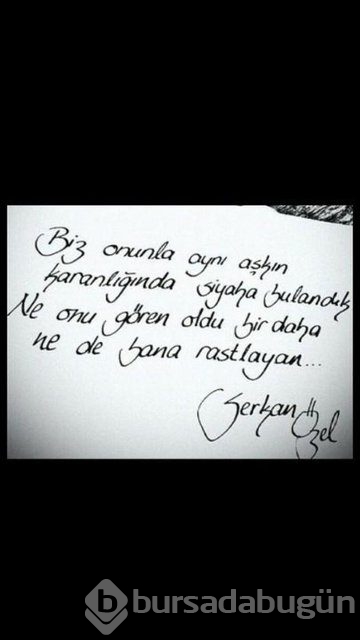 Biz onunla aynı aşkın
karanlığında siyaha bulandık
Ne onu gören oldu bir daha
ne de bana rastlayan...
Serkan Özel
b bursadabugün